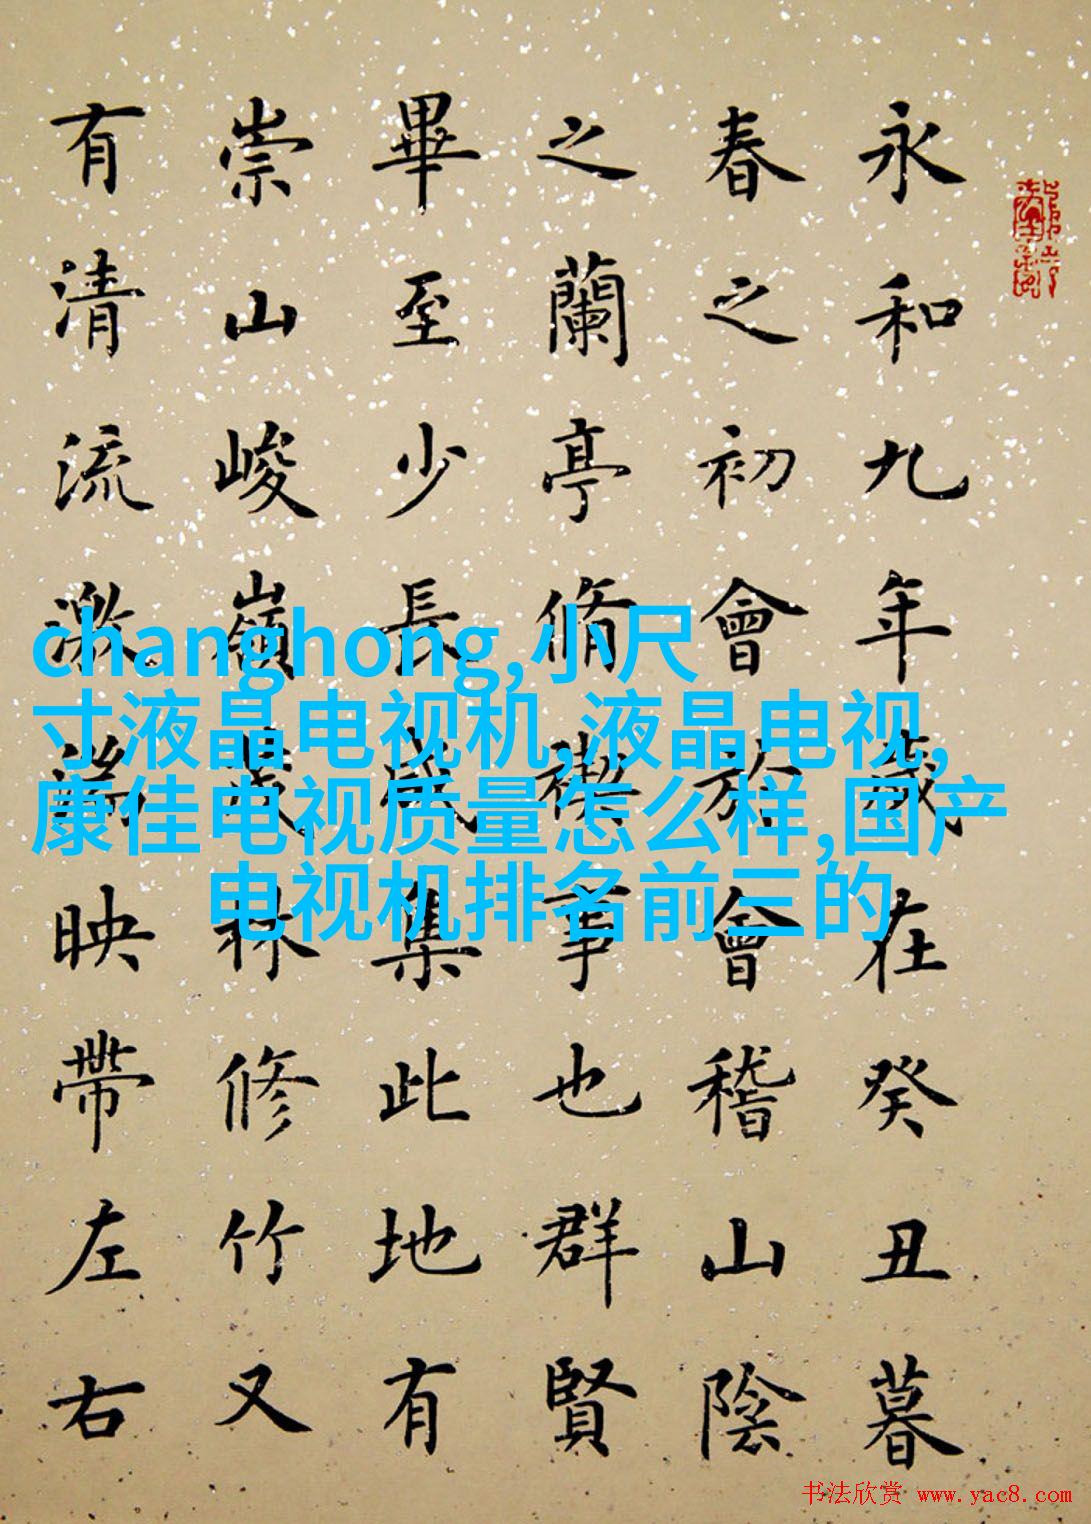 永和九年歲在癸丑暮
春之初會於會稽山陰
之蘭亭脩禊事也群賢
畢至少長咸集此地有
崇山峻嶺茂林修竹又
有清流激湍映帶左右
changhong,小尺
寸液晶电视机,液晶电视,
康佳电视质量怎么样,国产
电视机排名前三的
书法欣赏 www.yac8.com